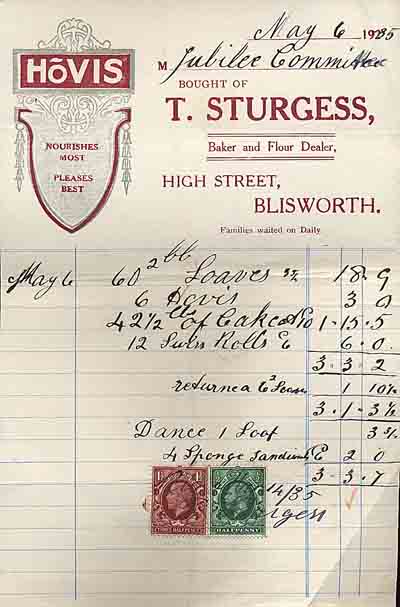 May 6 1935
M Jubilee Committee
HōVIS
NOURISHES
MOST
PLEASES
BEST
BOUGHT OF
T. STURGESS,
Baker and Flour Dealer,
HIGH STREET,
BLISWORTH.
Families waited on Daily
May 6 60 2 lb Loaves 3¾ 18 . 9
6 Hovis 3 0
42½ lbs of Cake 10 1 . 15 . 5
12 Swiss Rolls 6 6 . 0
3 . 3 . 2
returned 6 Loaves 1 10½
3 . 1 . 3½
Dance 1 Loaf 3¾
4 Sponge Sandwich 6 2 0
3 - 3 . 7
14/35
gess
HALFPENNY